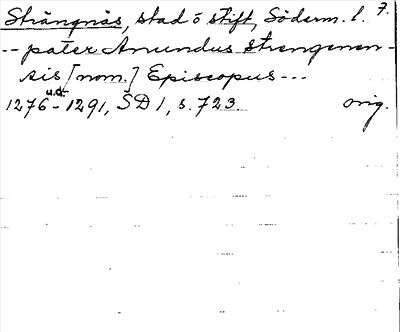 Strängnäs, stad o stift, Söderm. l. 7.
-- pater Anundus strengenen-
sis [nom.] Episcopus ---
1276 u.d. - 1291, SD 1, s. 723. orig.